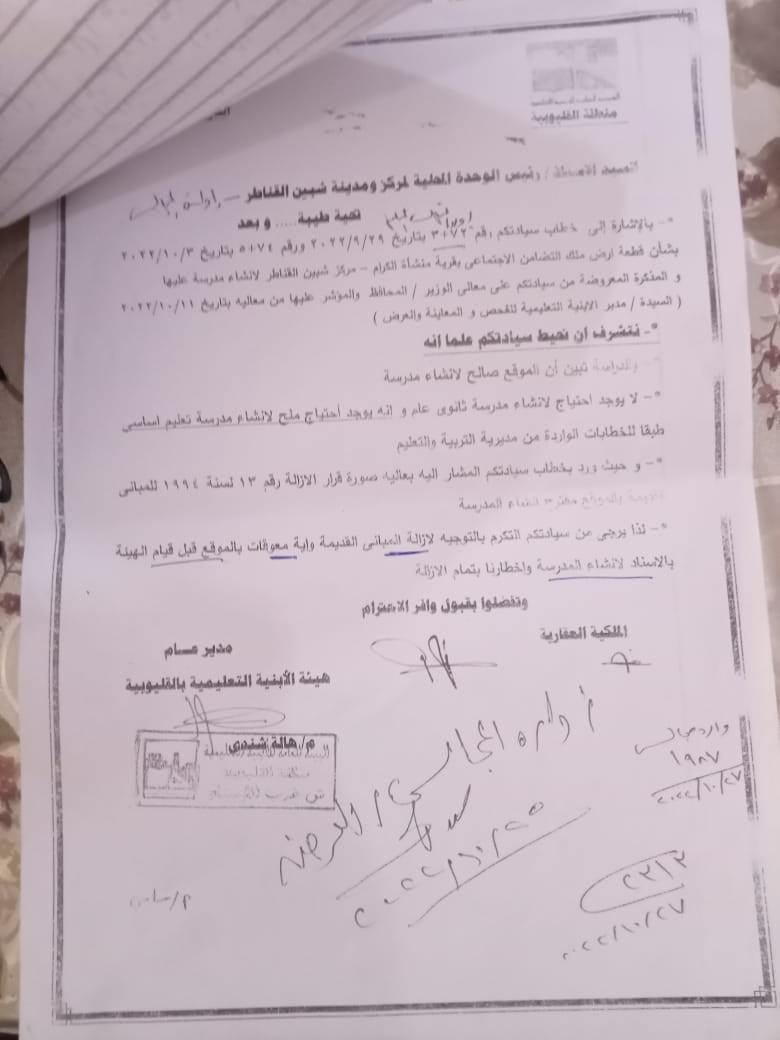 منطقة القليوبية
السيد الأستاذ / رئيس الوحدة المحلية لمركز ومدينة شبين القناطر
تحية طيبة .... و بعد
*- بالإشارة إلى خطاب سيادتكم رقم ٣٠٧٢ بتاريخ ٢٠٢٢/٩/٢٩ ورقم ٥٠٧٤ بتاريخ ٢٠٢٢/١٠/٣
بشأن قطعة ارض ملك التضامن الاجتماعى بقرية منشأة الكرام – مركز شبين القناطر لانشاء مدرسة عليها
و المذكرة المعروضة من سيادتكم على معالى الوزير / المحافظ والمؤشر عليها من معاليه بتاريخ ٢٠٢٢/١٠/١١
( السيدة / مدير الابنية التعليمية للفحص و المعاينة والعرض )
*- نتشرف ان نحيط سيادتكم علما انه
والدراسة تبين أن الموقع صالح لانشاء مدرسة
*- لا يوجد احتياج لانشاء مدرسة ثانوى عام و انه يوجد أحتياج ملح لانشاء مدرسة تعليم اساسي
طبقا للخطابات الواردة من مديرية التربية والتعليم
*- و حيث ورد بخطاب سيادتكم المشار اليه بعاليه صورة قرار الازالة رقم ١٣ لسنة ١٩٩٤ للمبانى
القديمة بالموقع مقترح انشاء المدرسة
*- لذا يرجى من سيادتكم التكرم بالتوجيه لازالة المبانى القديمة واية معوقات بالموقع قبل قيام الهيئة
بالاسناد لانشاء المدرسة واخطارنا بتمام الازالة
وتفضلوا بقبول وافر الاحترام
الملكية العقارية
مدير عام
هيئة الأبنية التعليمية بالقليوبية
م/ هالة شندى
وارد مجالس
١٩٨٧
٢٠٢٢/١٠/٢٧
ادارة المجالس
٢٠٢٢/١٠/٢٥
٢٣١٣
٢٠٢٢/١٠/٢٧